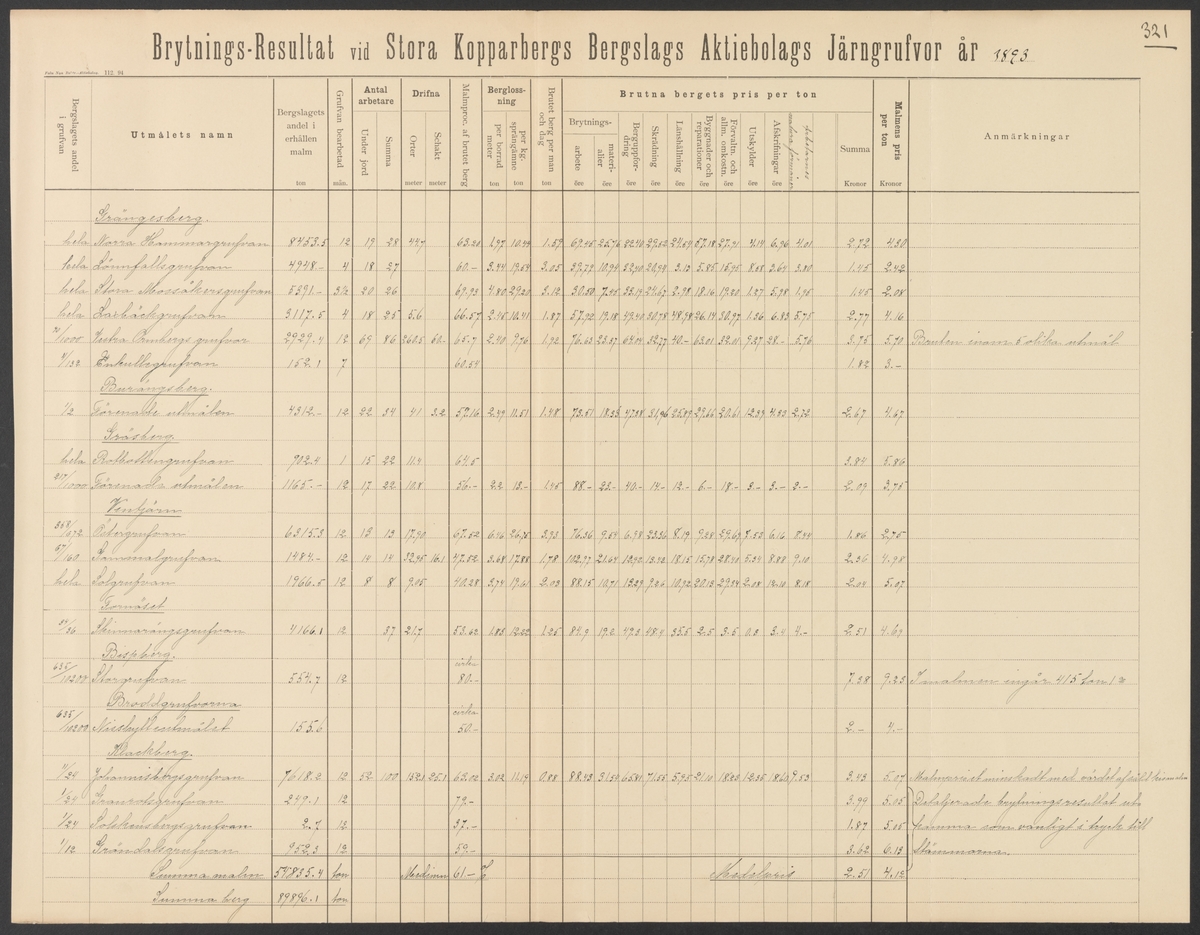 321
Brytnings-Resultat vid Stora Kopparbergs Bergslags Aktiebolags Järngrufvor år 1893
112. 94
Bergslagets andel i grufvan
Utmålets namn
Bergslagets andel i erhållen malm
ton
Grufvan bearbetad
mån.
Antal arbetare
Under jord
Summa
Drifna
Orter
meter
Schakt
meter
Malmproc. af brutet berg
Berglossning
per borrad meter
ton
per kg. sprängämne
ton
Brutet berg per man och dag
ton
Brutna bergets pris per ton
Brytnings-
arbete
öre
materialier
öre
Berguppfordring
öre
Skrädning
öre
Länshållning
öre
Byggnader och reparationer
öre
Förvaltn. och allm. omkostn.
öre
Utskylder
öre
Afskrifningar
öre
Arbetarnes natura förmåner
Summa
Kronor
Malmens pris per ton
Kronor
Anmärkningar
Grängesberg.
hela Norra Hammargrufvan 8453.5 12 19 28 44.7 63.20 1.97 10.44 1.59 69.45 25.76 22.40 29.82 24.64 57.18 27.41 4.14 6.96 4.01 2.72 4.30
hela Lönnfallsgrufvan 4948.- 4 18 27 60.- 3.44 19.64 3.05 1.45 2.42
hela Stora Mossåkersgrufvan 5391.- 3½ 20 26 69.93 4.80 29.20 3.12 1.45 2.08
hela Laxbäckgrufvan 3117.5 4 18 25 5.6 66.57 2.46 10.41 1.87 57.92 19.18 49.40 30.78 48.98 26.14 30.97 1.36 6.83 5.75 2.77 4.16
Vestra Ormbergs grufvor 2929.4 12 69 86 260.5 60.- 65.7 2.40 9.76 1.92 76.63 40.- 63.01 32.01 9.27 28.- 5.76 3.75 5.70 Bruten inom 5 olika utmål
4/132 Enkullegrufvan 152.1 7 60.54 1.82 3.-
Burängsberg.
1/2 Förenade utmålen 4312.- 12 22 34 41 3.2 57.16 2.39 11.51 1.48 73.51 18.33 47.88 31.96 25.89 29.66 20.61 12.39 4.83 2.72 2.67 4.67
Gräsberg
hela Rotbottengrufvan 902.4 1 15 22 11.4 64.5 3.84 5.86
217/1000 Förenade utmålen 1165.- 12 17 22 10.8 56.- 2.2 13.- 1.45 88.- 23.- 40.- 14.- 12.- 6.- 18.- 3.- 3.- 2.- 2.09 3.75
Ventjärn
358/672 Östergrufvan 6315.3 12 13 13 17.90 67.52 6.16 26.75 3.93 76.36 9.54 6.98 23.36 8.19 9.28 29.69 7.50 6.16 8.44 1.86 2.75
67/160 Gammalgrufvan 1484.- 12 14 14 32.95 16.1 47.82 3.68 17.88 1.78 102.97 21.64 18.15 15.78 28.48 5.34 8.88 9.10 2.36 4.98
hela Solgrufvan 1966.5 12 8 8 9.05 40.28 3.74 19.61 2.03 88.15 10.71 13.39 9.26 10.92 20.13 29.24 2.08 12.10 8.18 2.04 5.07
Fornäset
34/36 Skinnarängsgrufvan 4166.1 12 37 21.7 53.62 1.83 12.22 1.25 84.9 19.2 47.3 48.9 35.5 2.5 3.5 0.8 3.4 4.- 2.51 4.69
Bispberg.
635/10200 Storgrufvan 554.7 12 cirka 80.- 7.38 9.23 I malmen ingår 415 ton
Broddgrufvorna
635/10200 Nissbyttentmålet 155.6 cirka 50.- 2.- 4.-
Klackberg.
11/24 Johannisbergsgrufvan 7618.2 12 52 100 152.1 25.1 62.02 3.02 11.19 0.88 88.43 31.59 65.81 71.55 5.95 21.10 18.80 12.35 18.60 9.53 3.43 5.07
1/24 Granrotsgrufvan 249.1 12 79.- 3.99 5.05 Detaljerade brytningsresultat ut-
1/24 Solskensbergsgrufvan 2.7 12 37.- 1.87 5.05 komma som vanligt i tryck till
1/12 Gröndalsgrufvan 952.3 12 59.- 3.62 6.13 Stämmorna.
Summa malm 54835.4 ton Medium 61.- % Medelpris 2.51 4.12
Summa berg 89896.1 ton